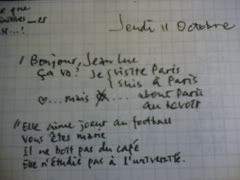 que
es
...!
Jeudi 11 Octobre
"Bonjour, Jean Luc
Ça va? Je visite Paris
I shis à Paris
... mais ... about Paris
au revoir
"Elle aime joeur au football
Vous êtes marie
Il ne boit pas du café
Elle n'étudie pas à l'université.